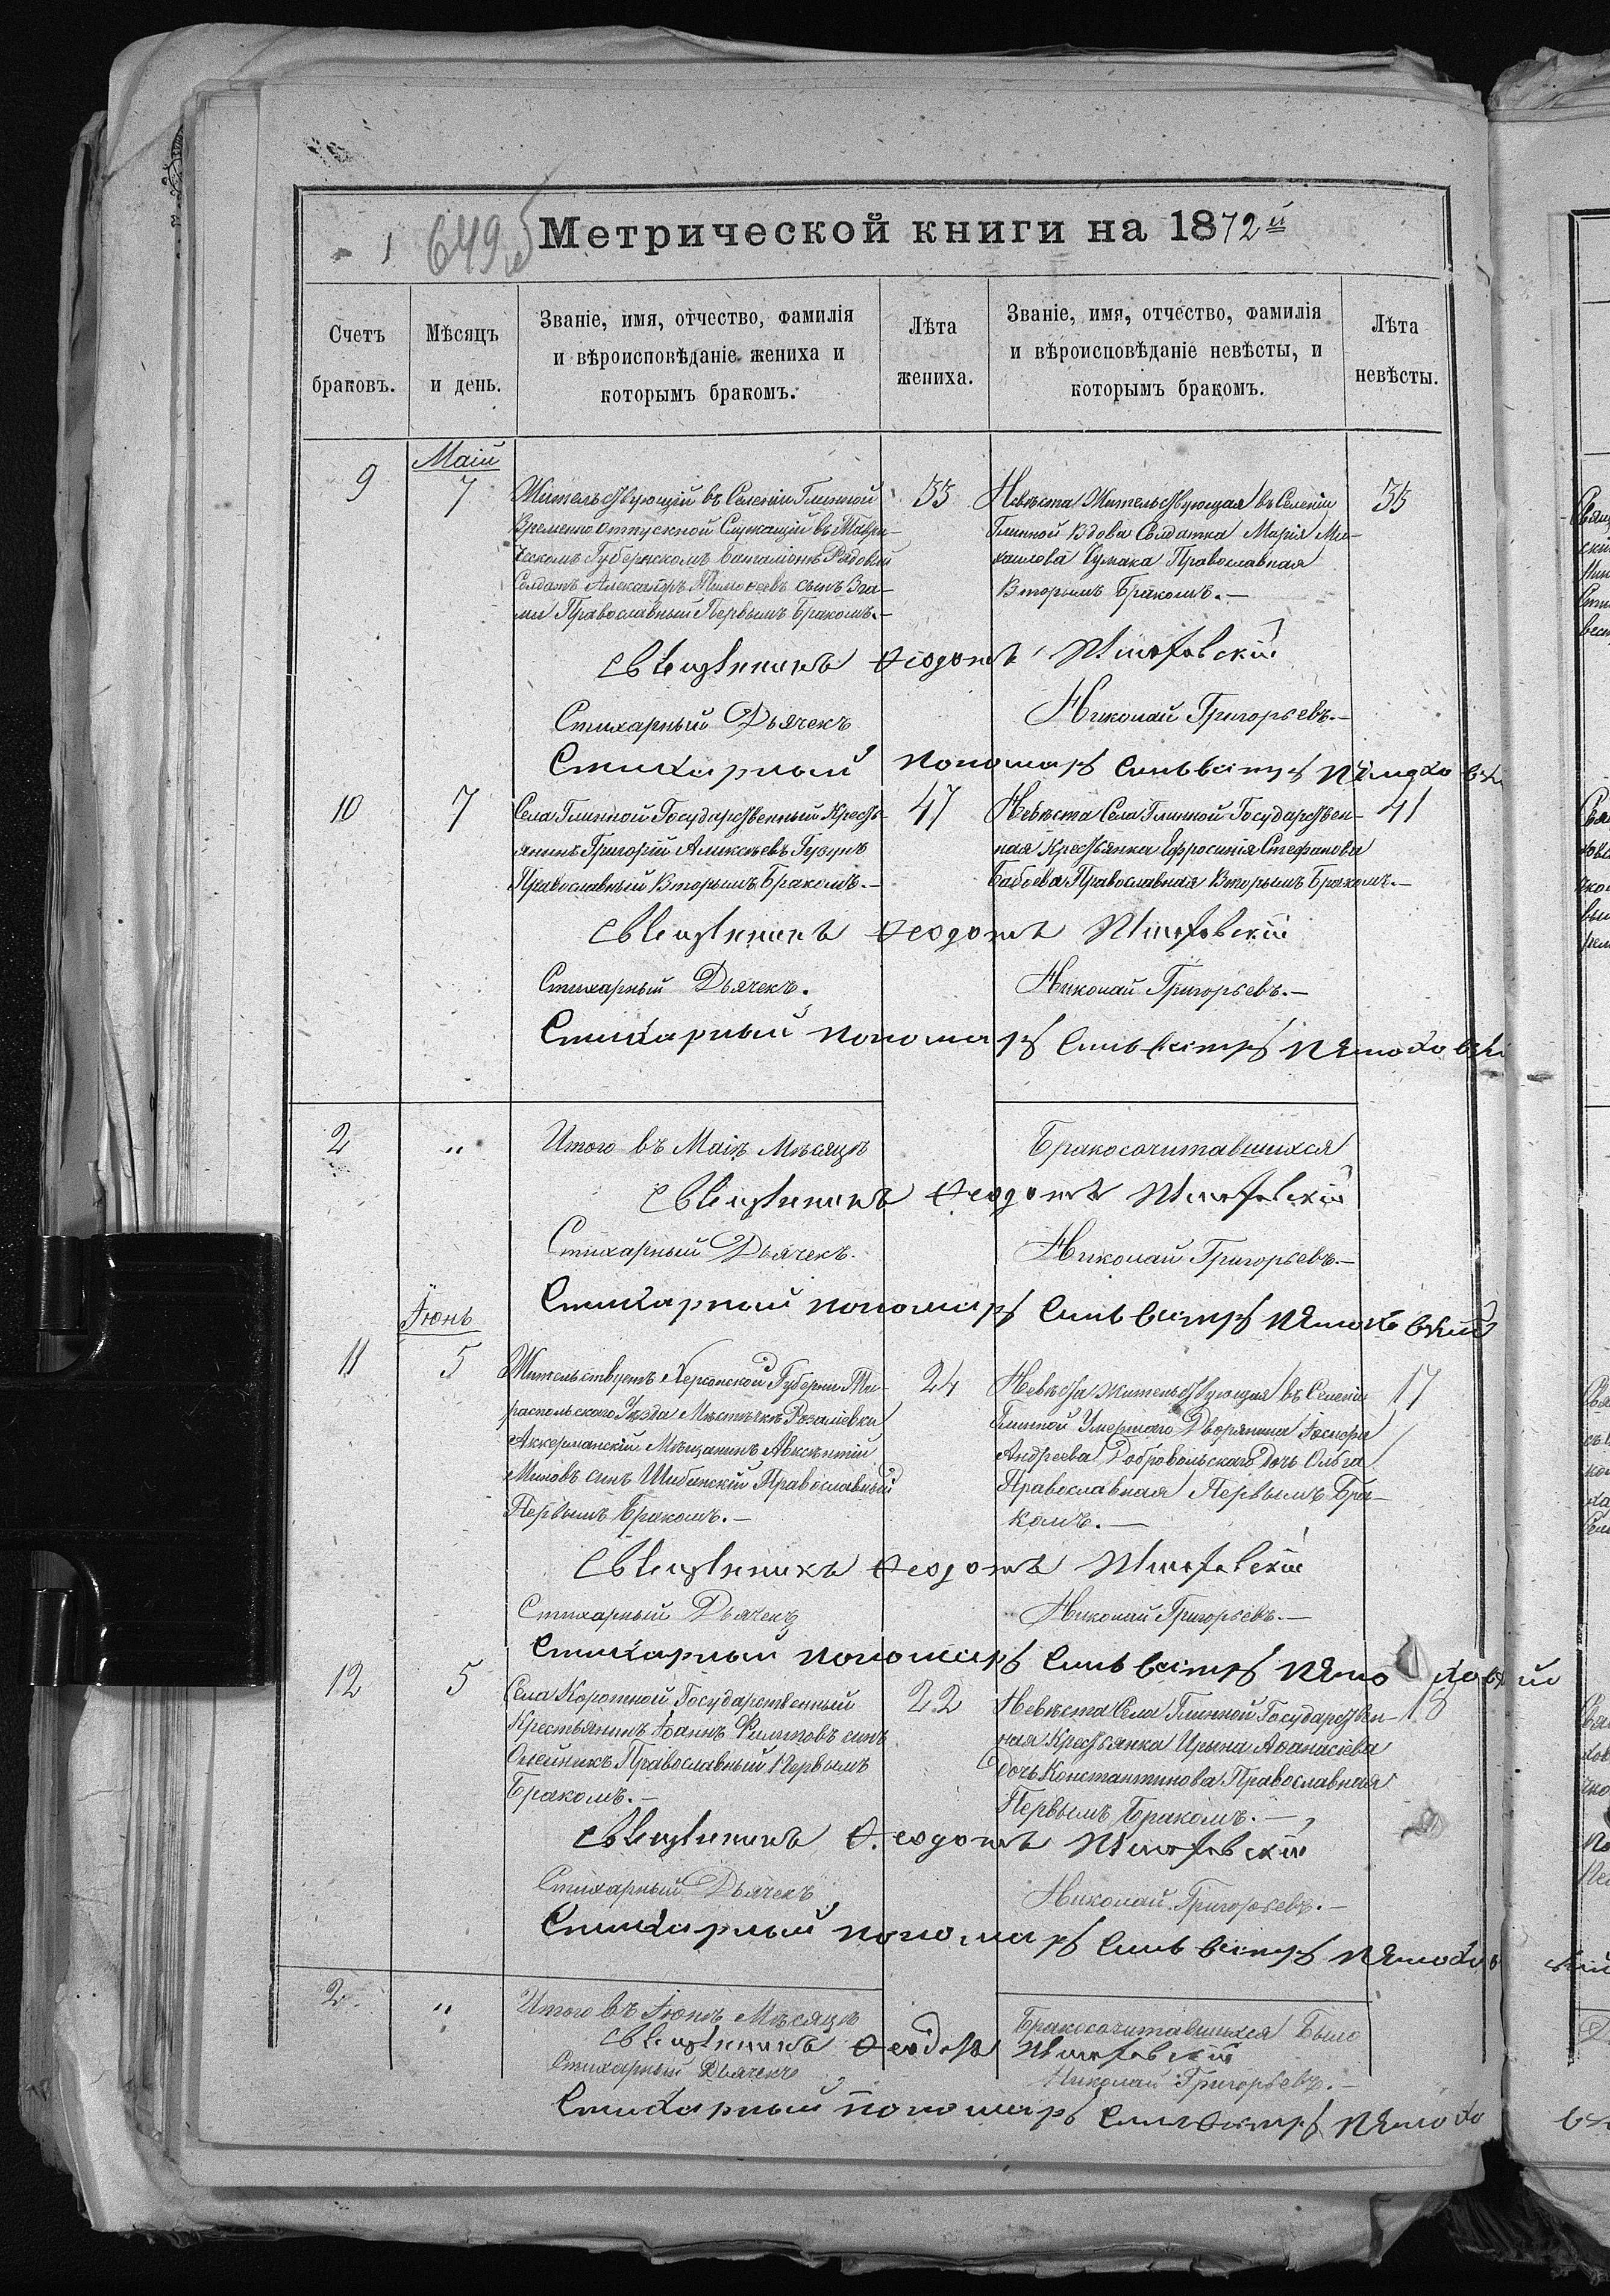 649
Метрической книги на 1872й
Счетъ браковъ.
Мѣсяцъ и день.
Званіе, имя, отчество, фамилія
и вѣроисповѣданіе жениха и
которымъ бракомъ.
Лѣта жениха.
Званіе, имя, отчество, фамилія
и вѣроисповѣданіе невѣсты, и
которымъ бракомъ.
Лѣта невѣсты.
Маій
9
7
Жительствующій въ Селеніи Глинной
Временно отпускной Служащій въ Таври-
ческомъ Губернскомъ баталіонѣ Рядовый
Солдатъ Александръ сынъ
Православный Первымъ Бракомъ.-
33
Невѣста Жительствующая въ Селеніи
Глинной Вдова Солдатка Марія Ми-
хаилова Чумака Православная
Вторымъ Бракомъ.-
35
Священникъ Ѳеодотъ
Стихарный Дьячекъ Николай Григорьевъ.-
Стихарный пономарь Сильвестръ
10
7
Села Глинной Государственный Кресть-
янинъ Григорій Алексѣевъ Гузунъ
Православный Вторымъ Бракомъ.-
47
Невѣста Села Глинной Государствен-
ная Крестьянка Ефросинія Стефанова
Бабоева Православная Вторымъ Бракомъ.-
41
Священникъ Ѳеодотъ
Стихарный Дьячекъ. Николай Григорьевъ.-
Стихарный пономарь Сильвестръ
2
"
Итого въ Маіѣ Мѣсяцѣ Бракосочитавшихся
Священникъ Ѳеодотъ
Стихарный Дьячекъ. Николай Григорьевъ.-
Стихарный пономарь Сильвестръ
Іюнь
11
5
Жительствуетъ Херсонской Губерніи Ти-
распольского Уѣзда Мѣстѣчкѣ Розаліевки
Аккерманскій Мѣщанинъ Авксентій
Миновъ сынъ Шибинскій Православный
Первымъ Бракомъ.-
24
Невѣста жительствующая въ Селеніи
Глинной Умершаго Дворянина
Андреева Добровольскаго Дочь Ольга
Православная Первымъ Бра-
комъ.-
17
Священника Ѳеодотъ
Стихарный Дьячекъ Николай Григорьевъ.-
Стихарный пономарь Сильвестръ
12
5
Села Коротной Государственный
Крестьянинъ Іоаннъ Филиповъ сынъ
Олейникъ Православный Первымъ
Бракомъ.-
22
Невѣста Села Глинной Государствен-
ная Крестьянка Ирына Аѳанасіева
дочь Константинова Православная
Первымъ Бракомъ.-
18
Священникъ Ѳеодотъ
Стихарный Дьячекъ Николай Григорьевъ.-
Стихарный пономарь Сильвестръ
2
"
Итого въ Іюнѣ Мѣсяцѣ Бракосочитавшихся Было
Священникъ Ѳеодотъ
Стихарный Дьячекъ Николай Григорьевъ.-
Стихарный пономарь Сильвестръ